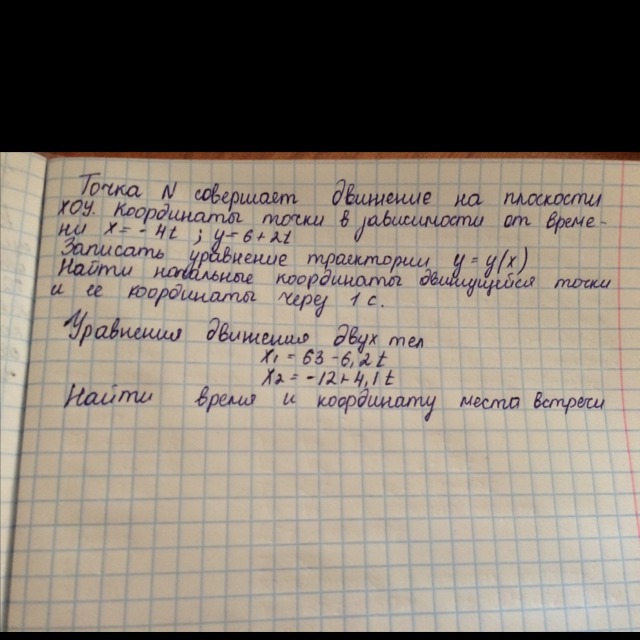 Точка N совершает движение на плоскости
XOY. Координаты точки в зависимости от време-
ни x = - 4t ; y = 6 + 2t
Записать уравнение траектории y = y(x)
Найти начальные координаты движущейся точки
и ее координаты через 1 с.
Уравнения движения двух тел
x₁ = 63 - 6,2t
x₂ = -12 + 4,1t
Найти время и координату места встречи